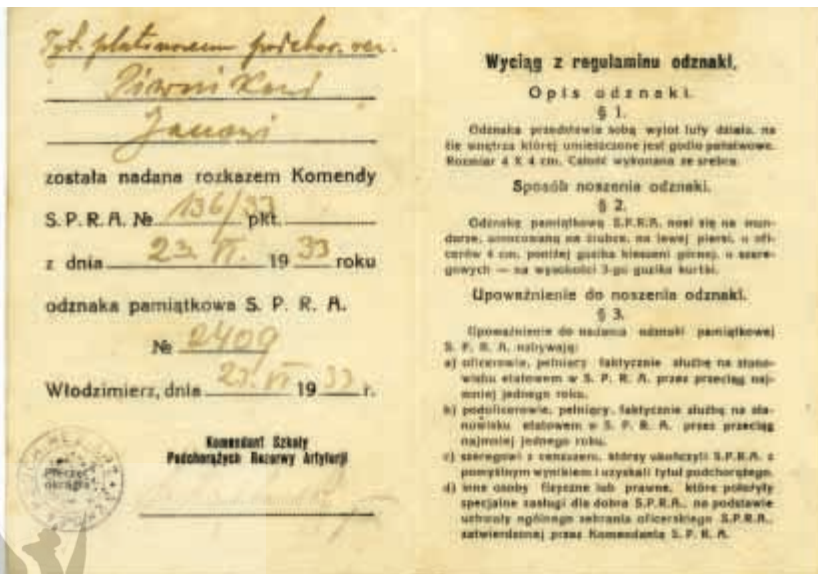 Tyt. plutonowemu podchor. rez.
Piwnikowi
Janowi
została nadana rozkazem Komendy
S. P. R. A. № 136/33 pkt.
z dnia 23. VI. 19 33 roku
odznaka pamiątkowa S. P. R. A.
№ 2409
Włodzimierz, dnia 23. VI 19 33 r.
Komendant Szkoły
Podchorążych Rezerwy Artylerji
Wyciąg z regulaminu odznaki.
Opis odznaki.
§ 1.
Odznaka przedstawia sobą wylot lufy działa, na
tle wnętrza której umieszczone jest godło państwowe.
Rozmiar 4 X 4 cm. Całość wykonana ze srebra.
Sposób noszenia odznaki.
§ 2.
Odznakę pamiątkową S.P.R.A. nosi się na mun-
durze, umocowaną na śrubce, na lewej piersi, u ofi-
cerów 4 cm. poniżej guzika kieszeni górnej, u szere-
gowych — na wysokości 3-go guzika kurtki.
Upoważnienie do noszenia odznaki.
§ 3.
Upoważnienie do nadania odznaki pamiątkowej
S. P. R. A. nabywają:
a) oficerowie, pełniący faktycznie służbę na stano-
wisku etatowem w S. P. R. A. przez przeciąg naj-
mniej jednego roku.
b) podoficerowie, pełniący, faktycznie służbę na sta-
nowisku etatowem w S. P. R. A. przez przeciąg
najmniej jednego roku.
c) szeregowi z cenzusem, którzy ukończyli S.P.R.A. z
pomyślnym wynikiem i uzyskali tytuł podchorążego.
d) inne osoby fizyczne lub prawne, które położyły
specjalne zasługi dla dobra S.P.R.A., na podstawie
uchwały ogólnego zebrania oficerskiego S.P.R.A.,
zatwierdzonej przez Komendanta S. P. R. A.